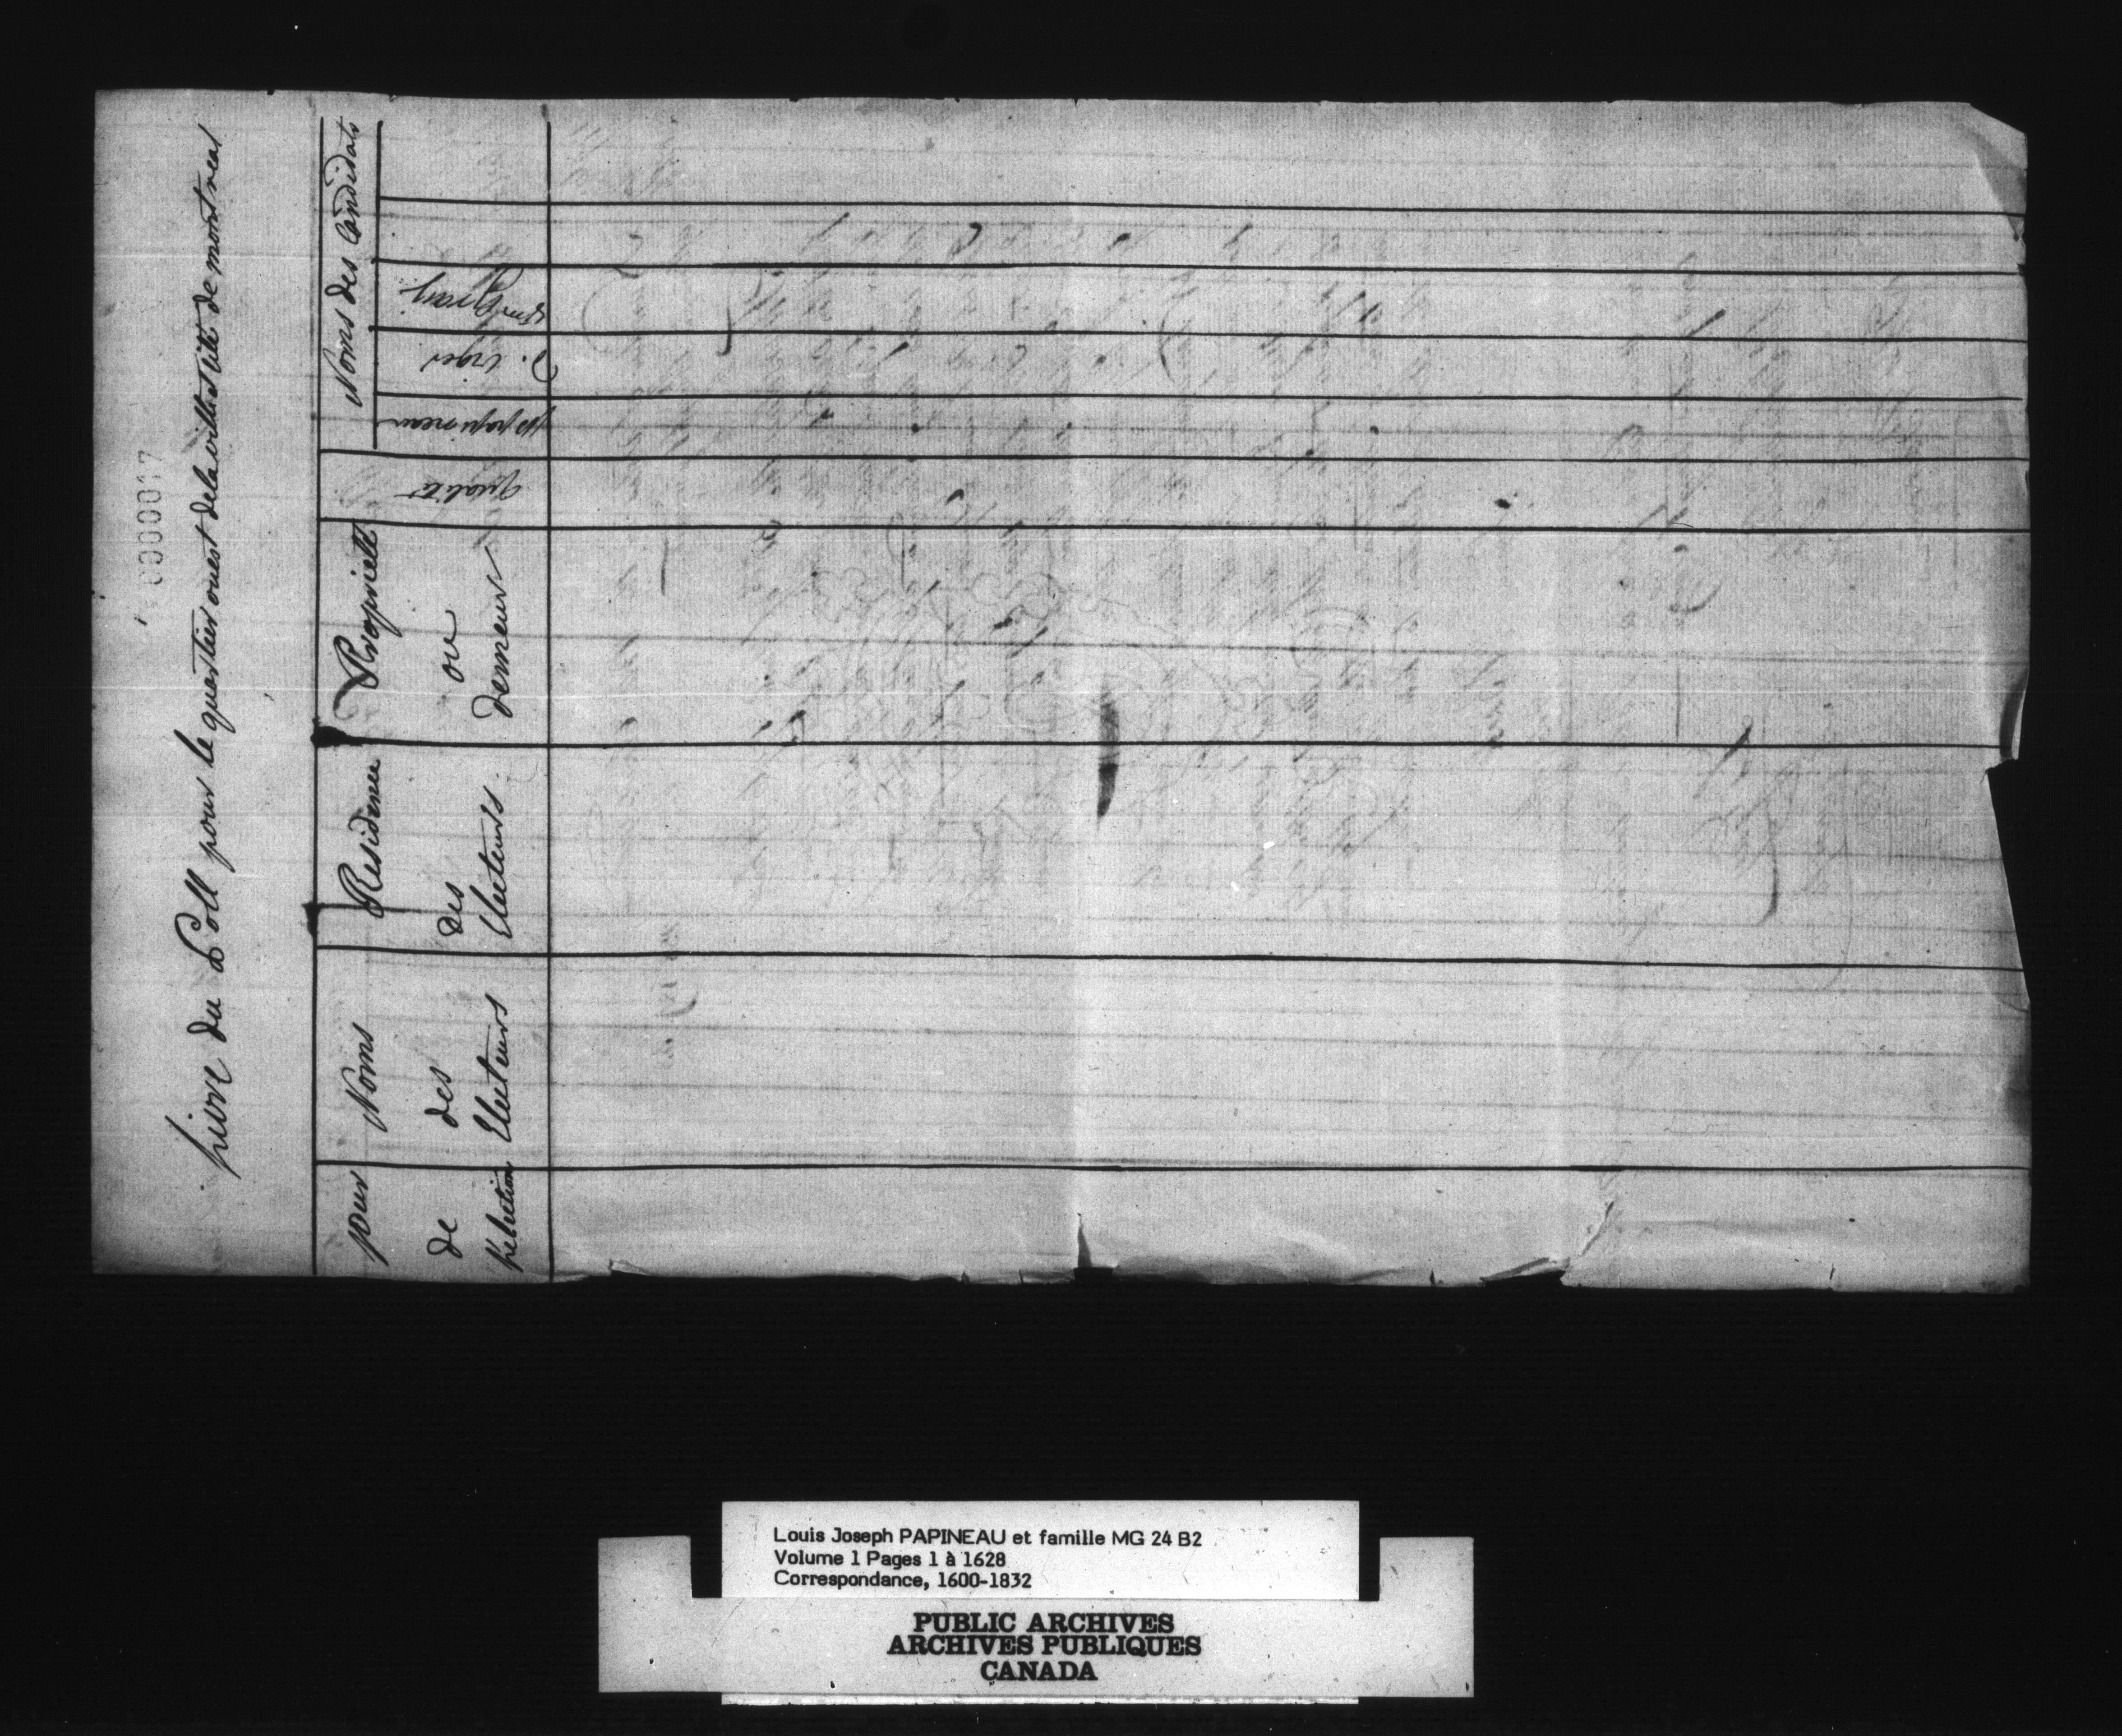 0000017
Livre du Poll pour le quartier ouest de la ville & Cité de montreal
jour
de
l'election
Noms
des
Electeurs
Residence
des
Electeurs
Proprieté
ou
demeure
qualité
Noms des Candidats
Jos papineau
D. Viger
Gray
Louis Joseph PAPINEAU et famille MG 24 B2
Volume 1 Pages 1 à 1628
Correspondance, 1600-1832
PUBLIC ARCHIVES
ARCHIVES PUBLIQUES
CANADA